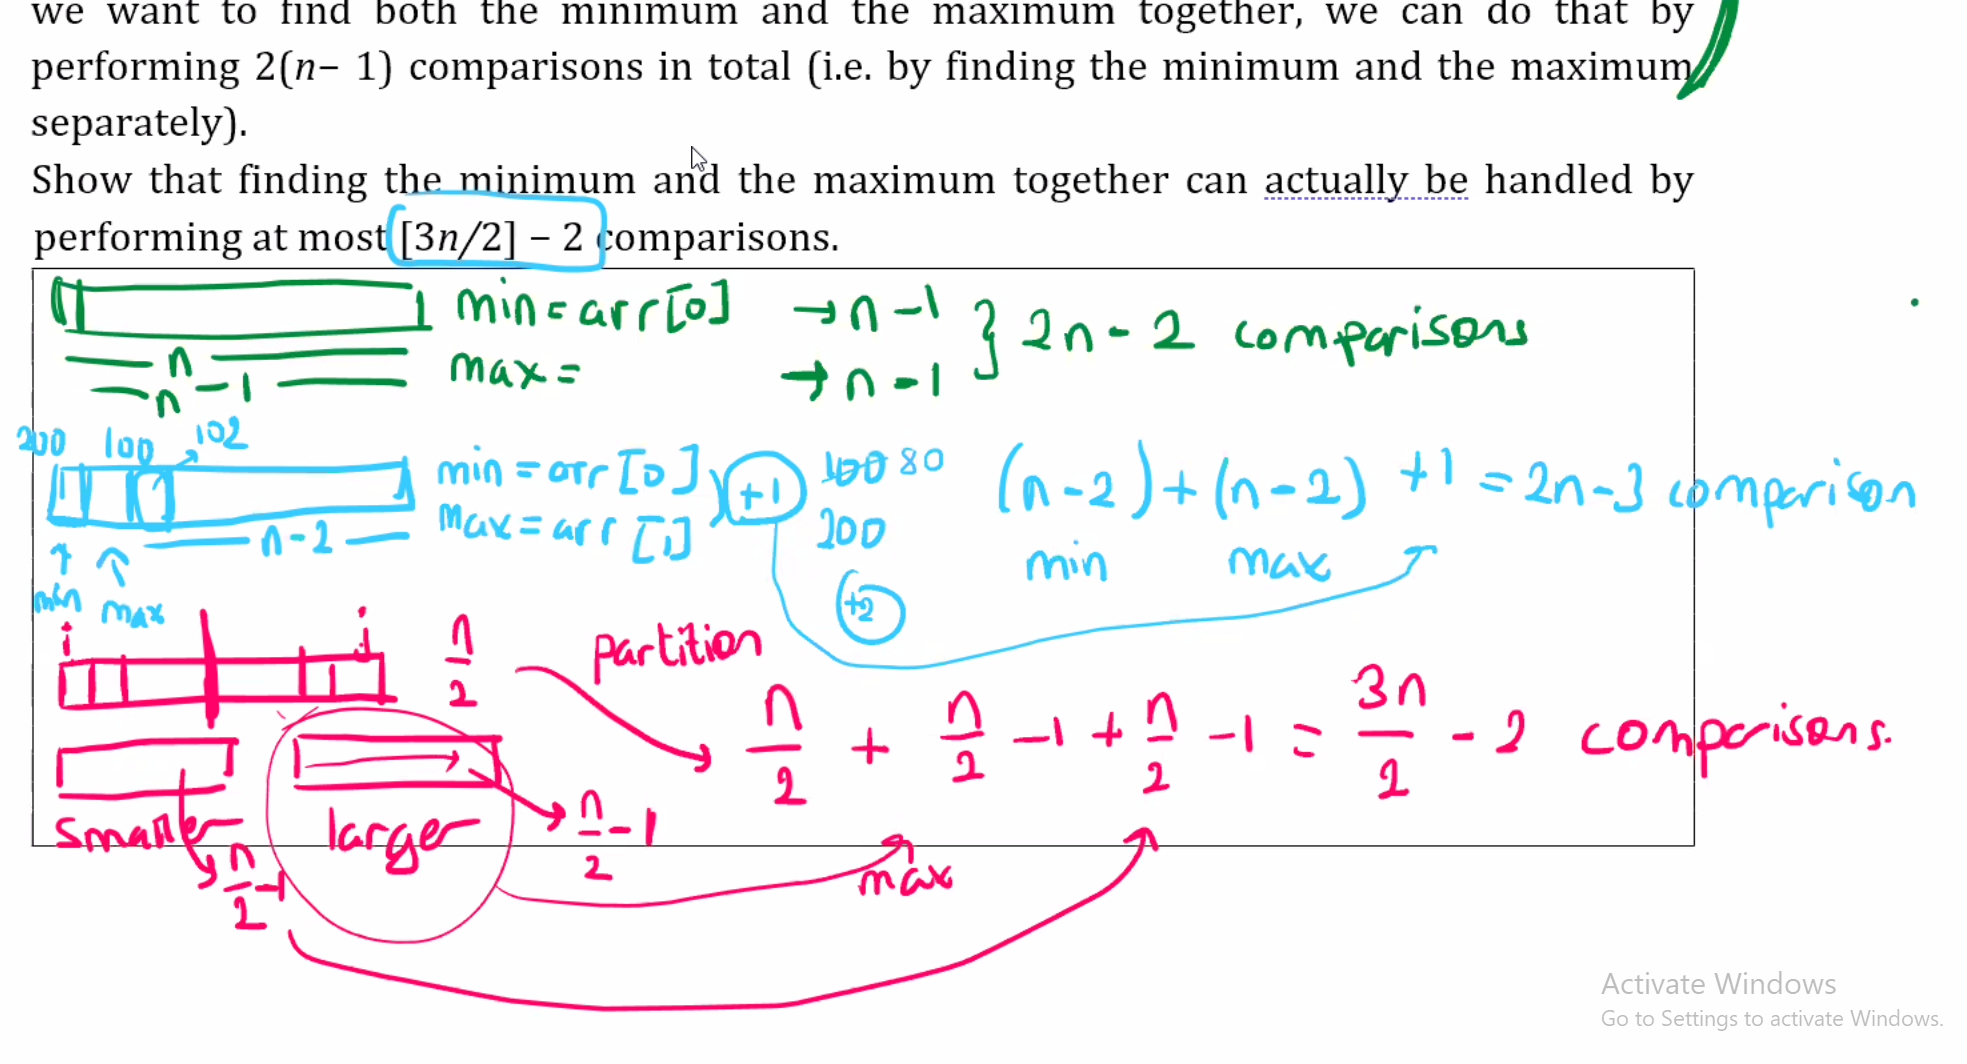 we want to find both the minimum and the maximum together, we can do that by
performing 2(n– 1) comparisons in total (i.e. by finding the minimum and the maximum
separately).
Show that finding the minimum and the maximum together can actually be handled by
performing at most [3n/2] – 2 comparisons.
min = arr[0] → n - 1 } 2n - 2 comparisons
max = → n - 1
n
n - 1
200 100 102
min = arr[0] +1 100 80 (n-2) + (n-2) +1 = 2n-3 comparison
max = arr[1] 200 min max
n-2
min max +2
i j n/2 partition
n/2 + n/2 - 1 + n/2 - 1 = 3n/2 - 2 comparisons.
smaller larger n/2 - 1
n/2 - 1 max
Activate Windows
Go to Settings to activate Windows.